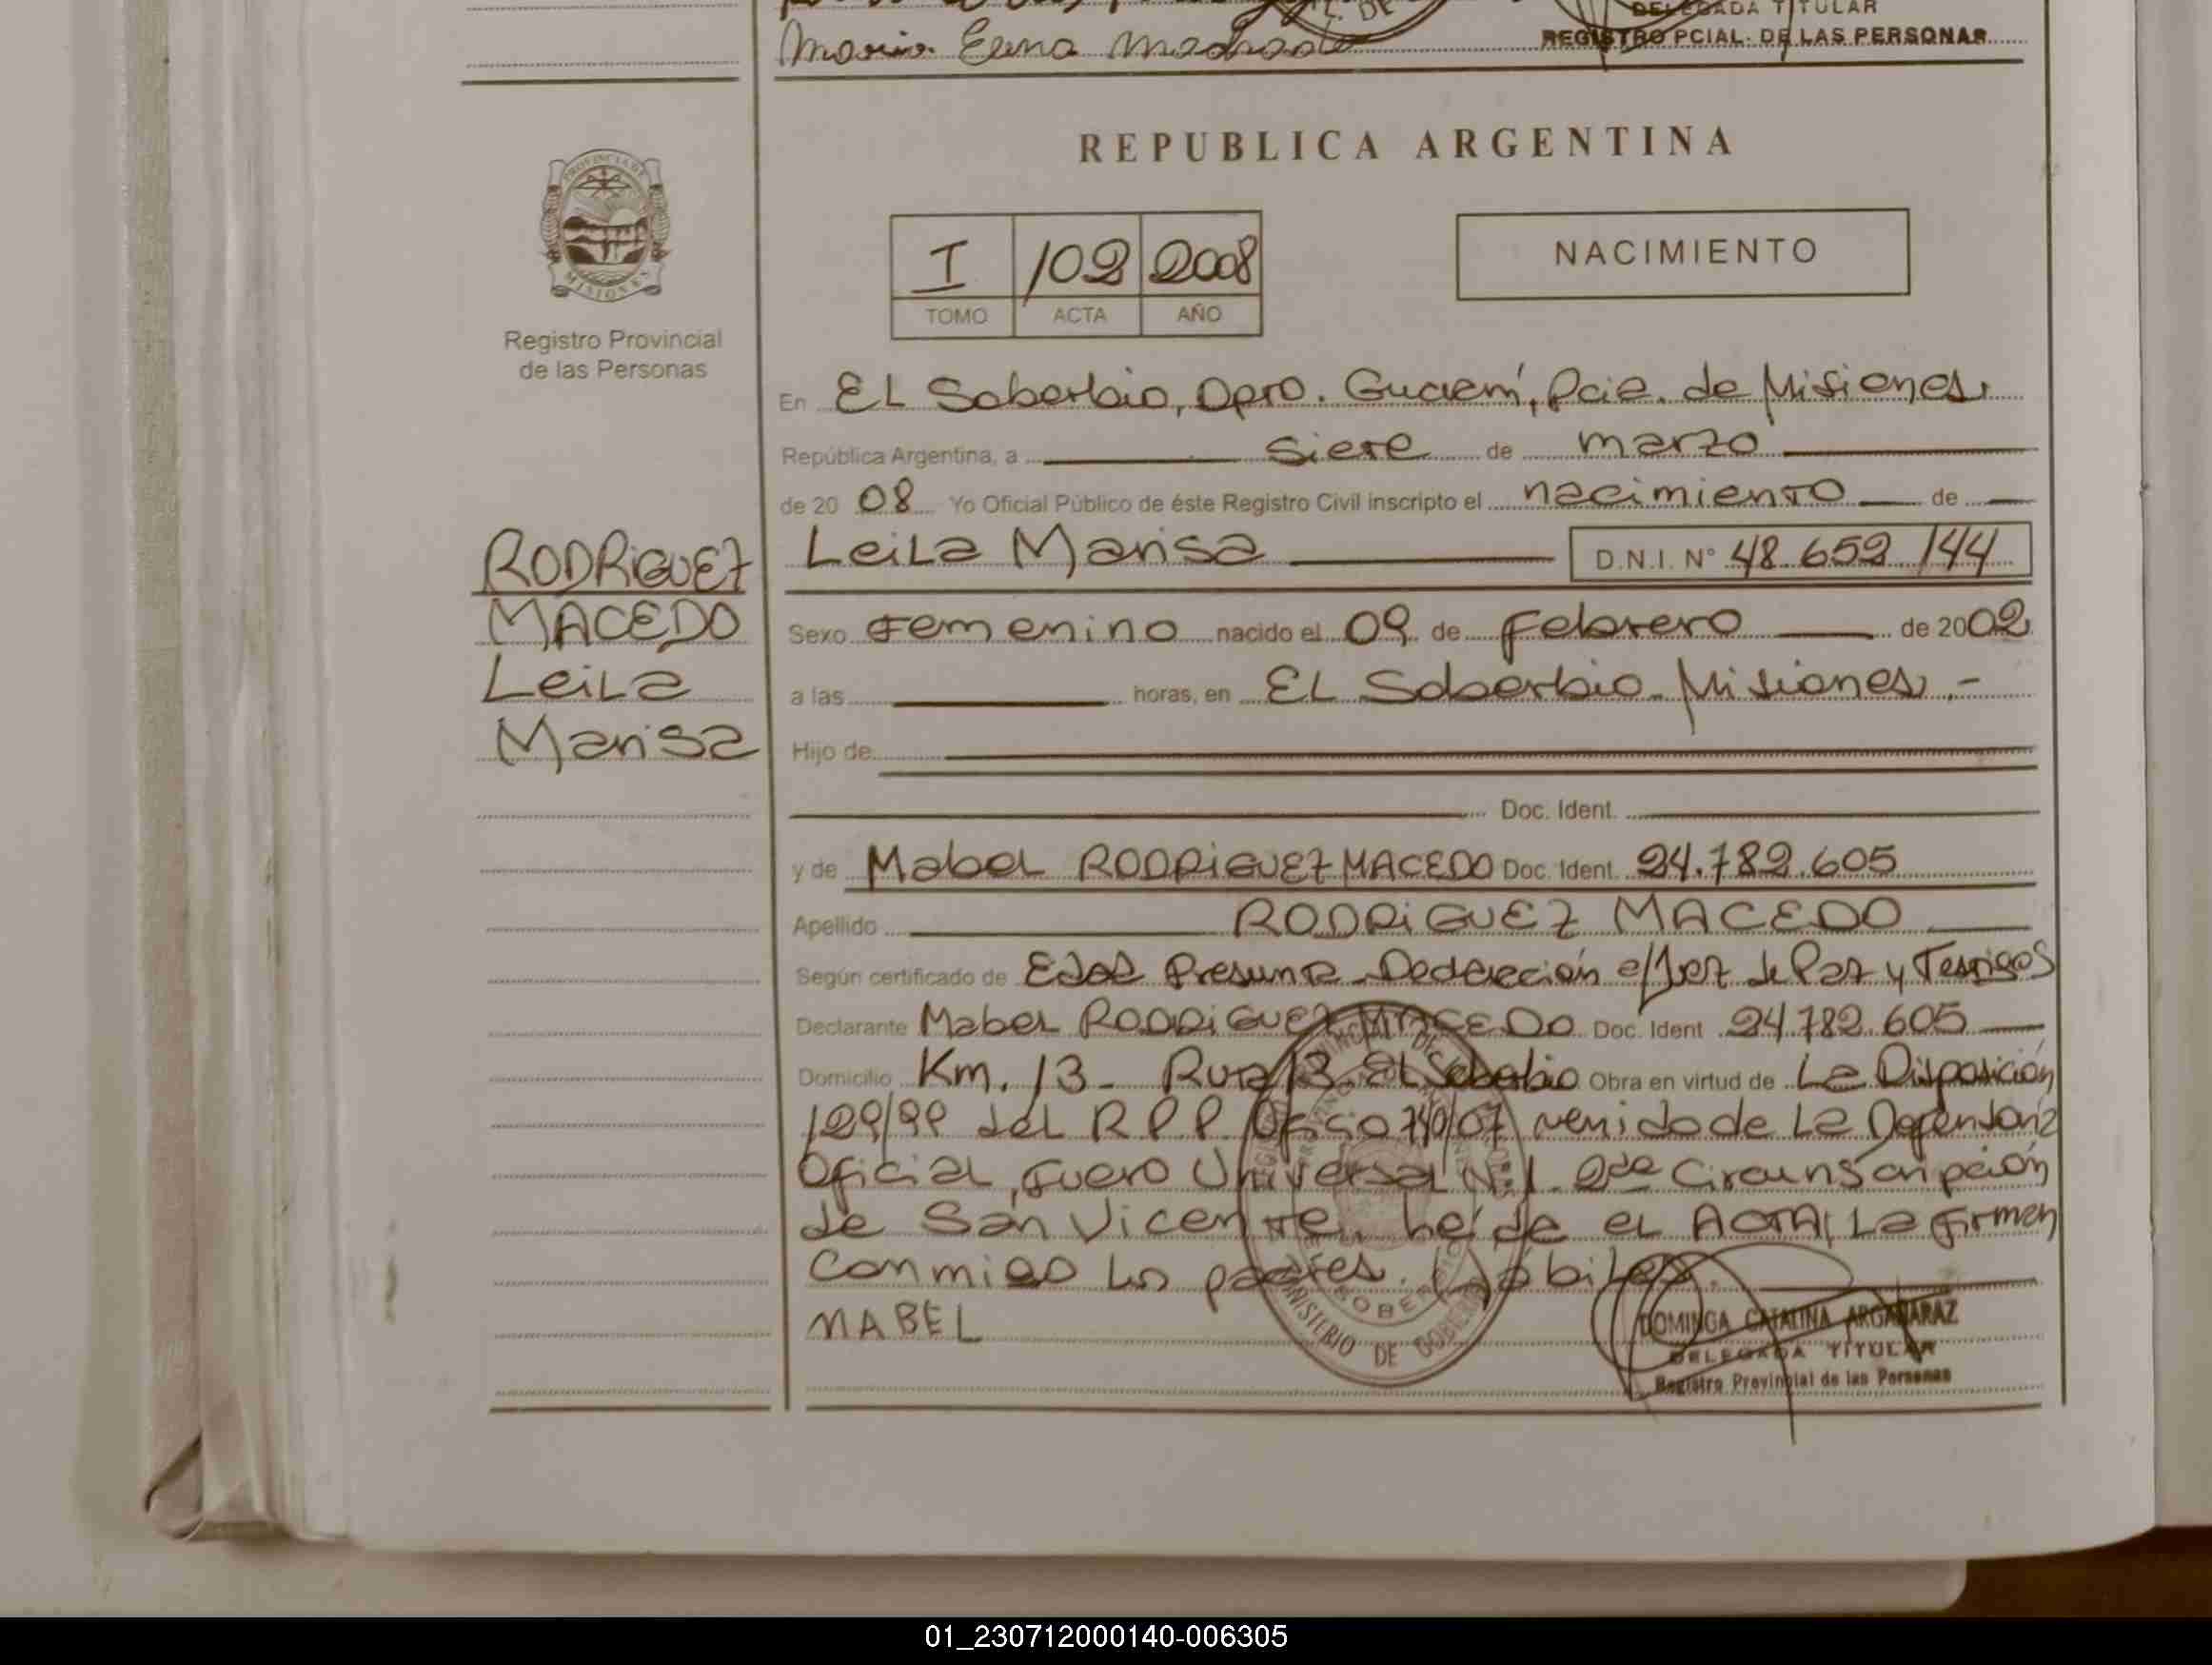 DELEGADA TITULAR
Maria Elena Machado
REGISTRO PCIAL. DE LAS PERSONAS
REPUBLICA ARGENTINA
PROVINCIA DE
MISIONES
I 102 2008
TOMO ACTA AÑO
NACIMIENTO
Registro Provincial
de las Personas
En EL Soberbio, Dpto. Guarani, Pcia. de Misiones
República Argentina, a siete de marzo
de 20 08 Yo Oficial Público de éste Registro Civil inscripto el nacimiento de
RODRIGUEZ
MACEDO
Leila
Marisa
Leila Marisa D.N.I. N° 48.652.144
Sexo Femenino nacido el 09 de Febrero de 2002
a las horas, en EL Soberbio Misiones.-
Hijo de
Doc. Ident.
y de Mabel RODRIGUEZ MACEDO Doc. Ident. 24.782.605
Apellido RODRIGUEZ MACEDO
Según certificado de Edad Presunta - Declaración e/Juez de Paz y Testigos
Declarante Mabel RODRIGUEZ MACEDO Doc. Ident 24.782.605
Domicilio Km. 13 - Ruta 13. EL Soberbio Obra en virtud de La Disposición
129/99 del R P P Oficio 740/07 venido de La Defensoria
Oficial, Fuero Universal N° 1 2da Circunscripción
de San Vicente, leída el ACTA, La firman
conmigo los partes. hábiles.
MABEL
MINISTERIO DE GOBIERNO
DOMINGA CATALINA ARGAÑARAZ
DELEGADA TITULAR
Registro Provincial de las Personas
01_230712000140-006305